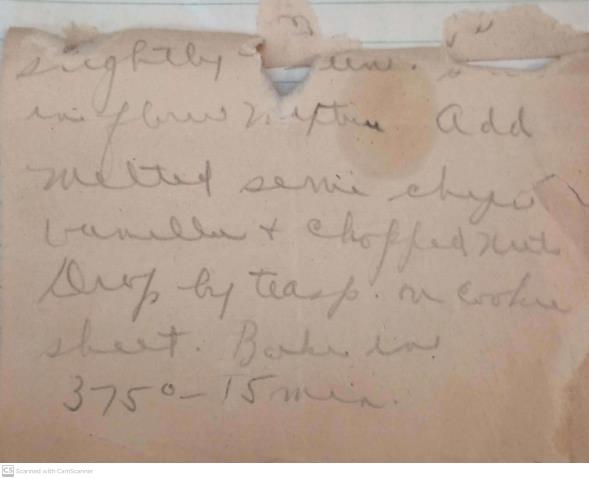 slightly
in flour mixture Add
Melted semi chips
Vanilla + Chopped Nuts
Drop by teasp. on cookie
sheet. Bake in
375°-15 min.
CS Scanned with CamScanner